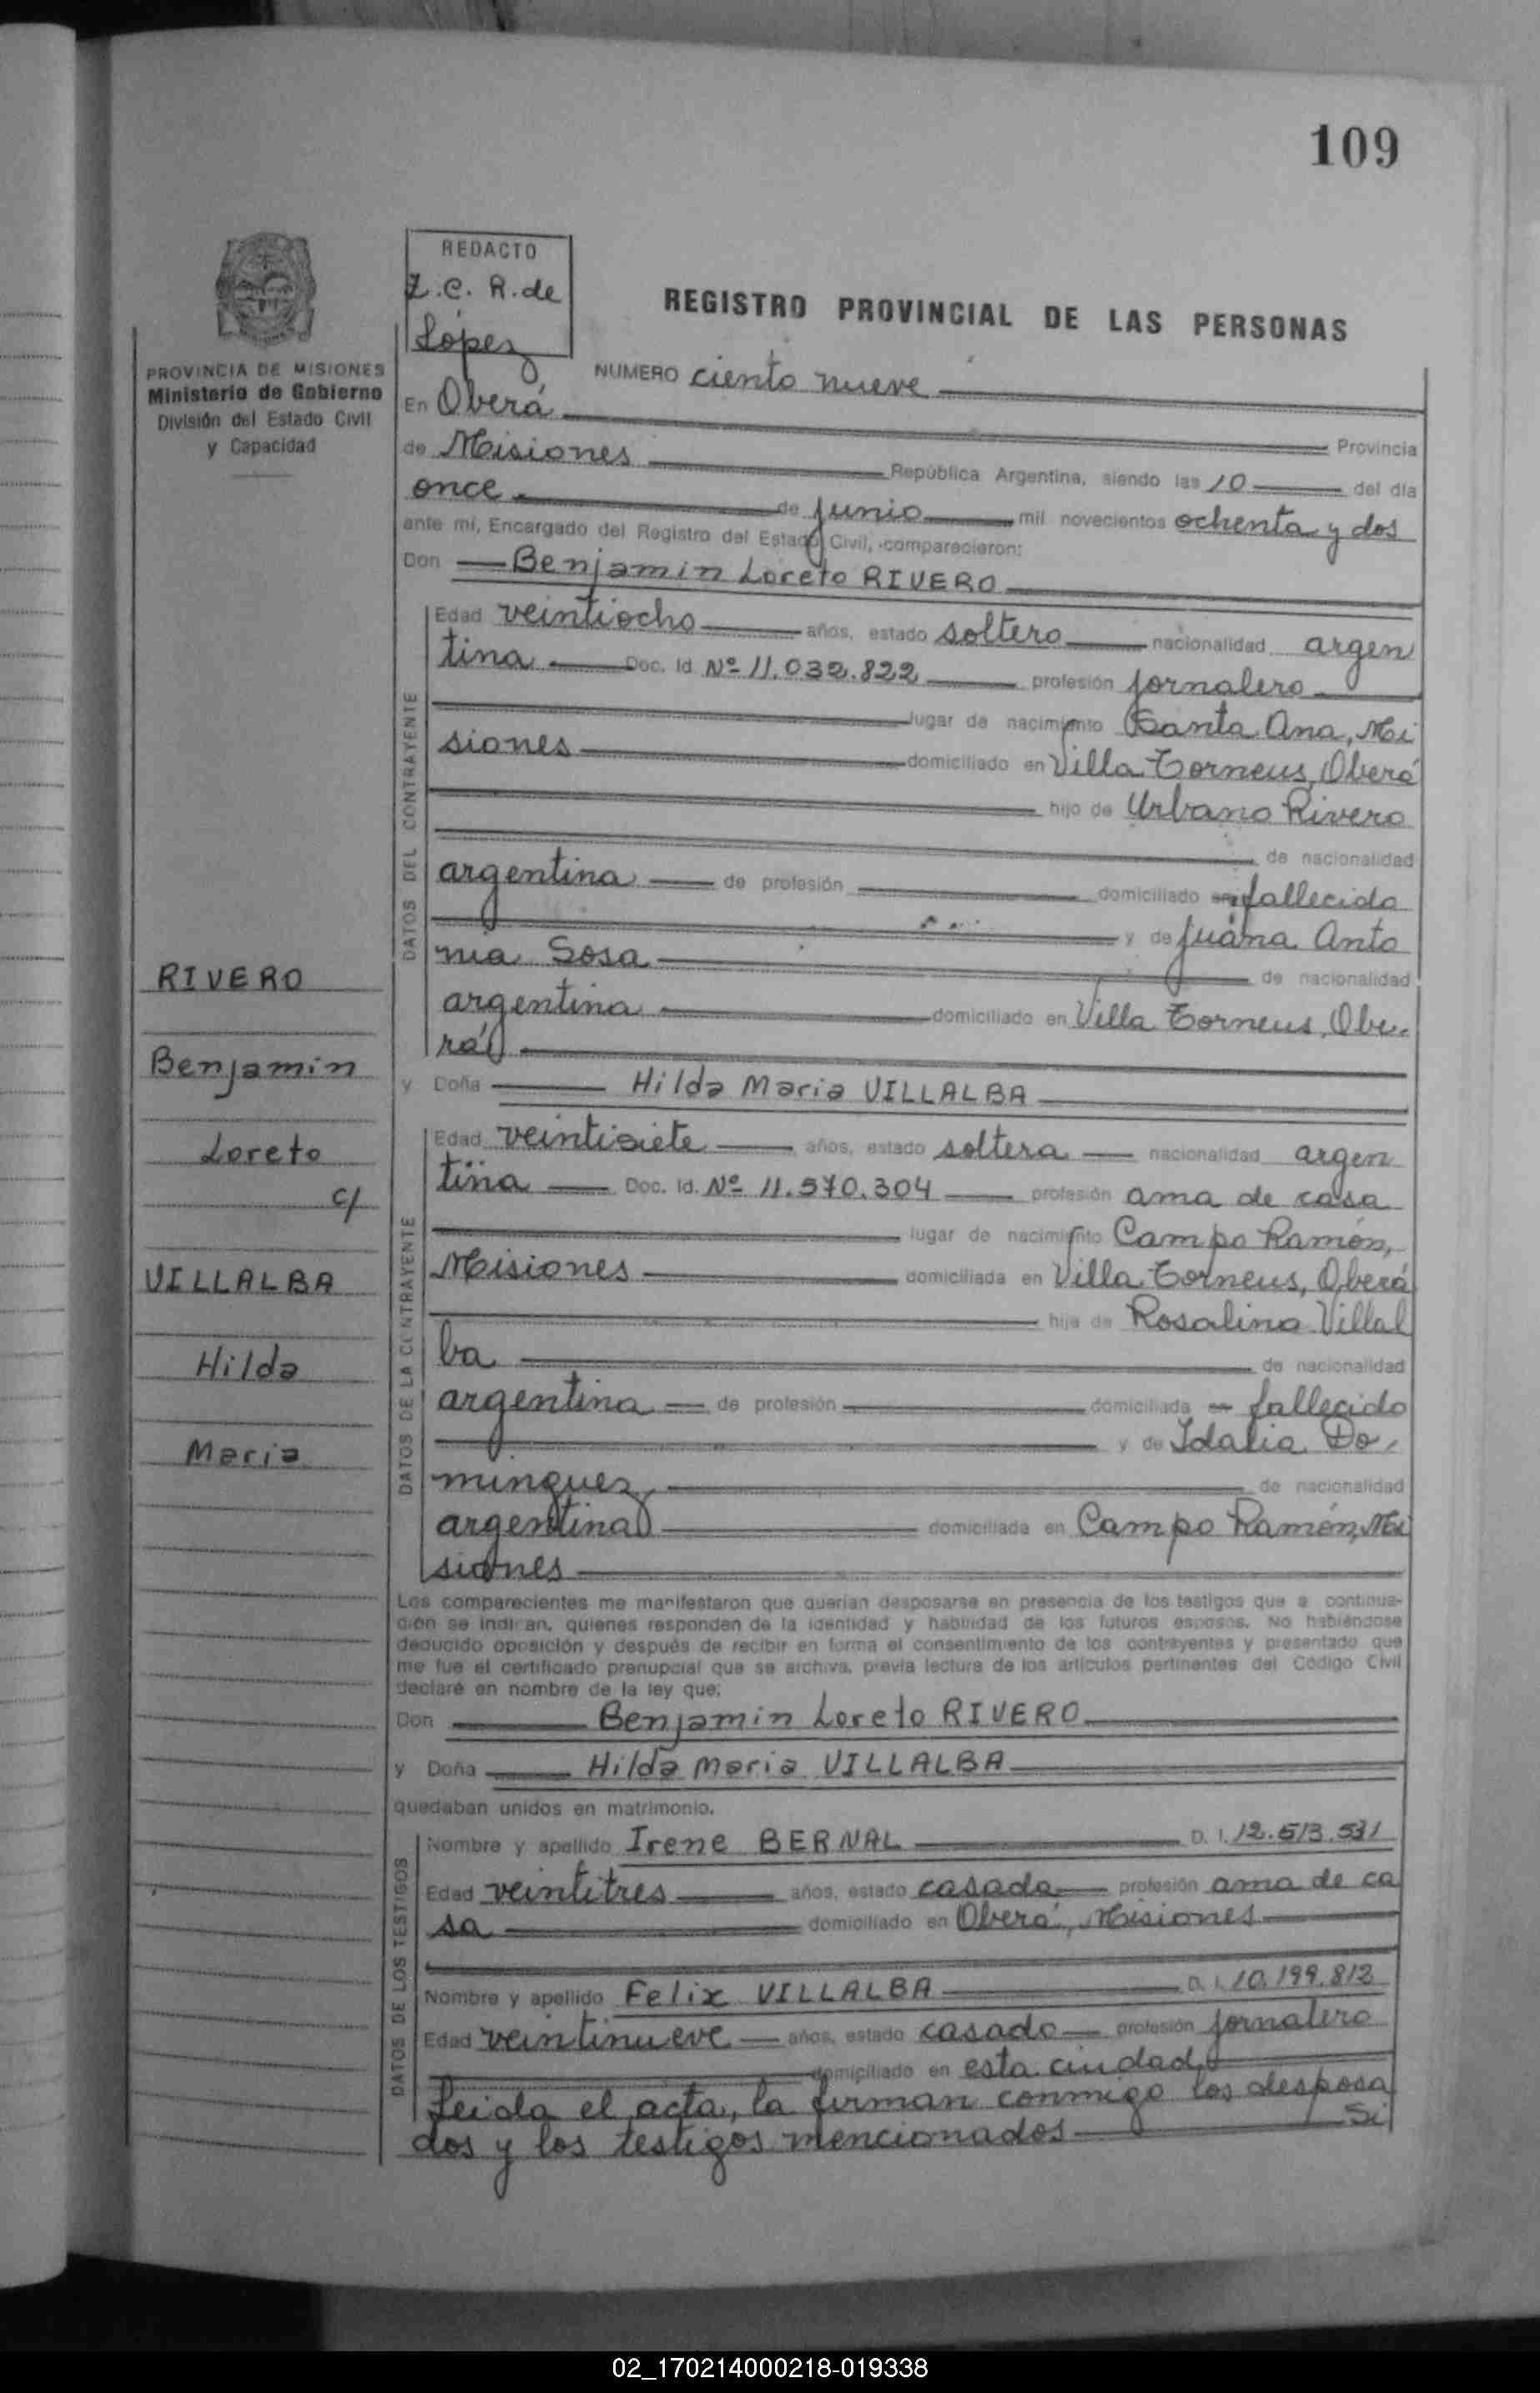 109
REDACTO
Z.C. R. de
López
REGISTRO PROVINCIAL DE LAS PERSONAS
PROVINCIA DE MISIONES
Ministerio de Gobierno
División del Estado Civil
y Capacidad
NUMERO ciento nueve
En Oberá Provincia
de Misiones República Argentina, siendo las 10 del día
once de junio mil novecientos ochenta y dos
ante mí, Encargado del Registro del Estado Civil, comparecieron:
Don Benjamin Loreto RIVERO
DATOS DEL CONTRAYENTE
Edad veintiocho años, estado soltero nacionalidad argen
tina Doc. Id. Nº 11.032.822 profesión jornalero
lugar de nacimiento Santa Ana, Mi
siones domiciliado en Villa Torneus, Oberá
hijo de Urbano Rivero
de nacionalidad
argentina de profesión domiciliado en fallecido
y de Juana Anto
nia Sosa de nacionalidad
argentina domiciliado en Villa Torneus, Obe
rá
y Doña Hilda Maria VILLALBA
DATOS DE LA CONTRAYENTE
Edad veintisiete años, estado soltera nacionalidad argen
tina Doc. Id. Nº 11.570.304 profesión ama de casa
lugar de nacimiento Campo Ramón,
Misiones domiciliada en Villa Torneus, Oberá
hija de Rosalino Villal
ba de nacionalidad
argentina de profesión domiciliada en fallecido
y de Idalia Do
minguez de nacionalidad
argentina domiciliada en Campo Ramón, Mi
siones
RIVERO
Benjamin
Loreto
c/
VILLALBA
Hilda
Maria
Los comparecientes me manifestaron que querían desposarse en presencia de los testigos que a continua-
ción se indican, quienes responden de la identidad y habilidad de los futuros esposos. No habiéndose
deducido oposición y después de recibir en forma el consentimiento de los contrayentes y presentado que
me fue el certificado prenupcial que se archiva, previa lectura de los artículos pertinentes del Código Civil
declaré en nombre de la ley que:
Don Benjamin Loreto RIVERO
y Doña Hilda Maria VILLALBA
quedaban unidos en matrimonio.
DATOS DE LOS TESTIGOS
Nombre y apellido Irene BERNAL D. I. 12.513.531
Edad veintitres años, estado casada profesión ama de ca
sa domiciliado en Oberá, Misiones
Nombre y apellido Felix VILLALBA D. I. 10.199.812
Edad veintinueve años, estado casado profesión jornalero
domiciliado en esta ciudad
Leida el acta, la firman conmigo los desposa
dos y los testigos mencionados Si
02_170214000218-019338